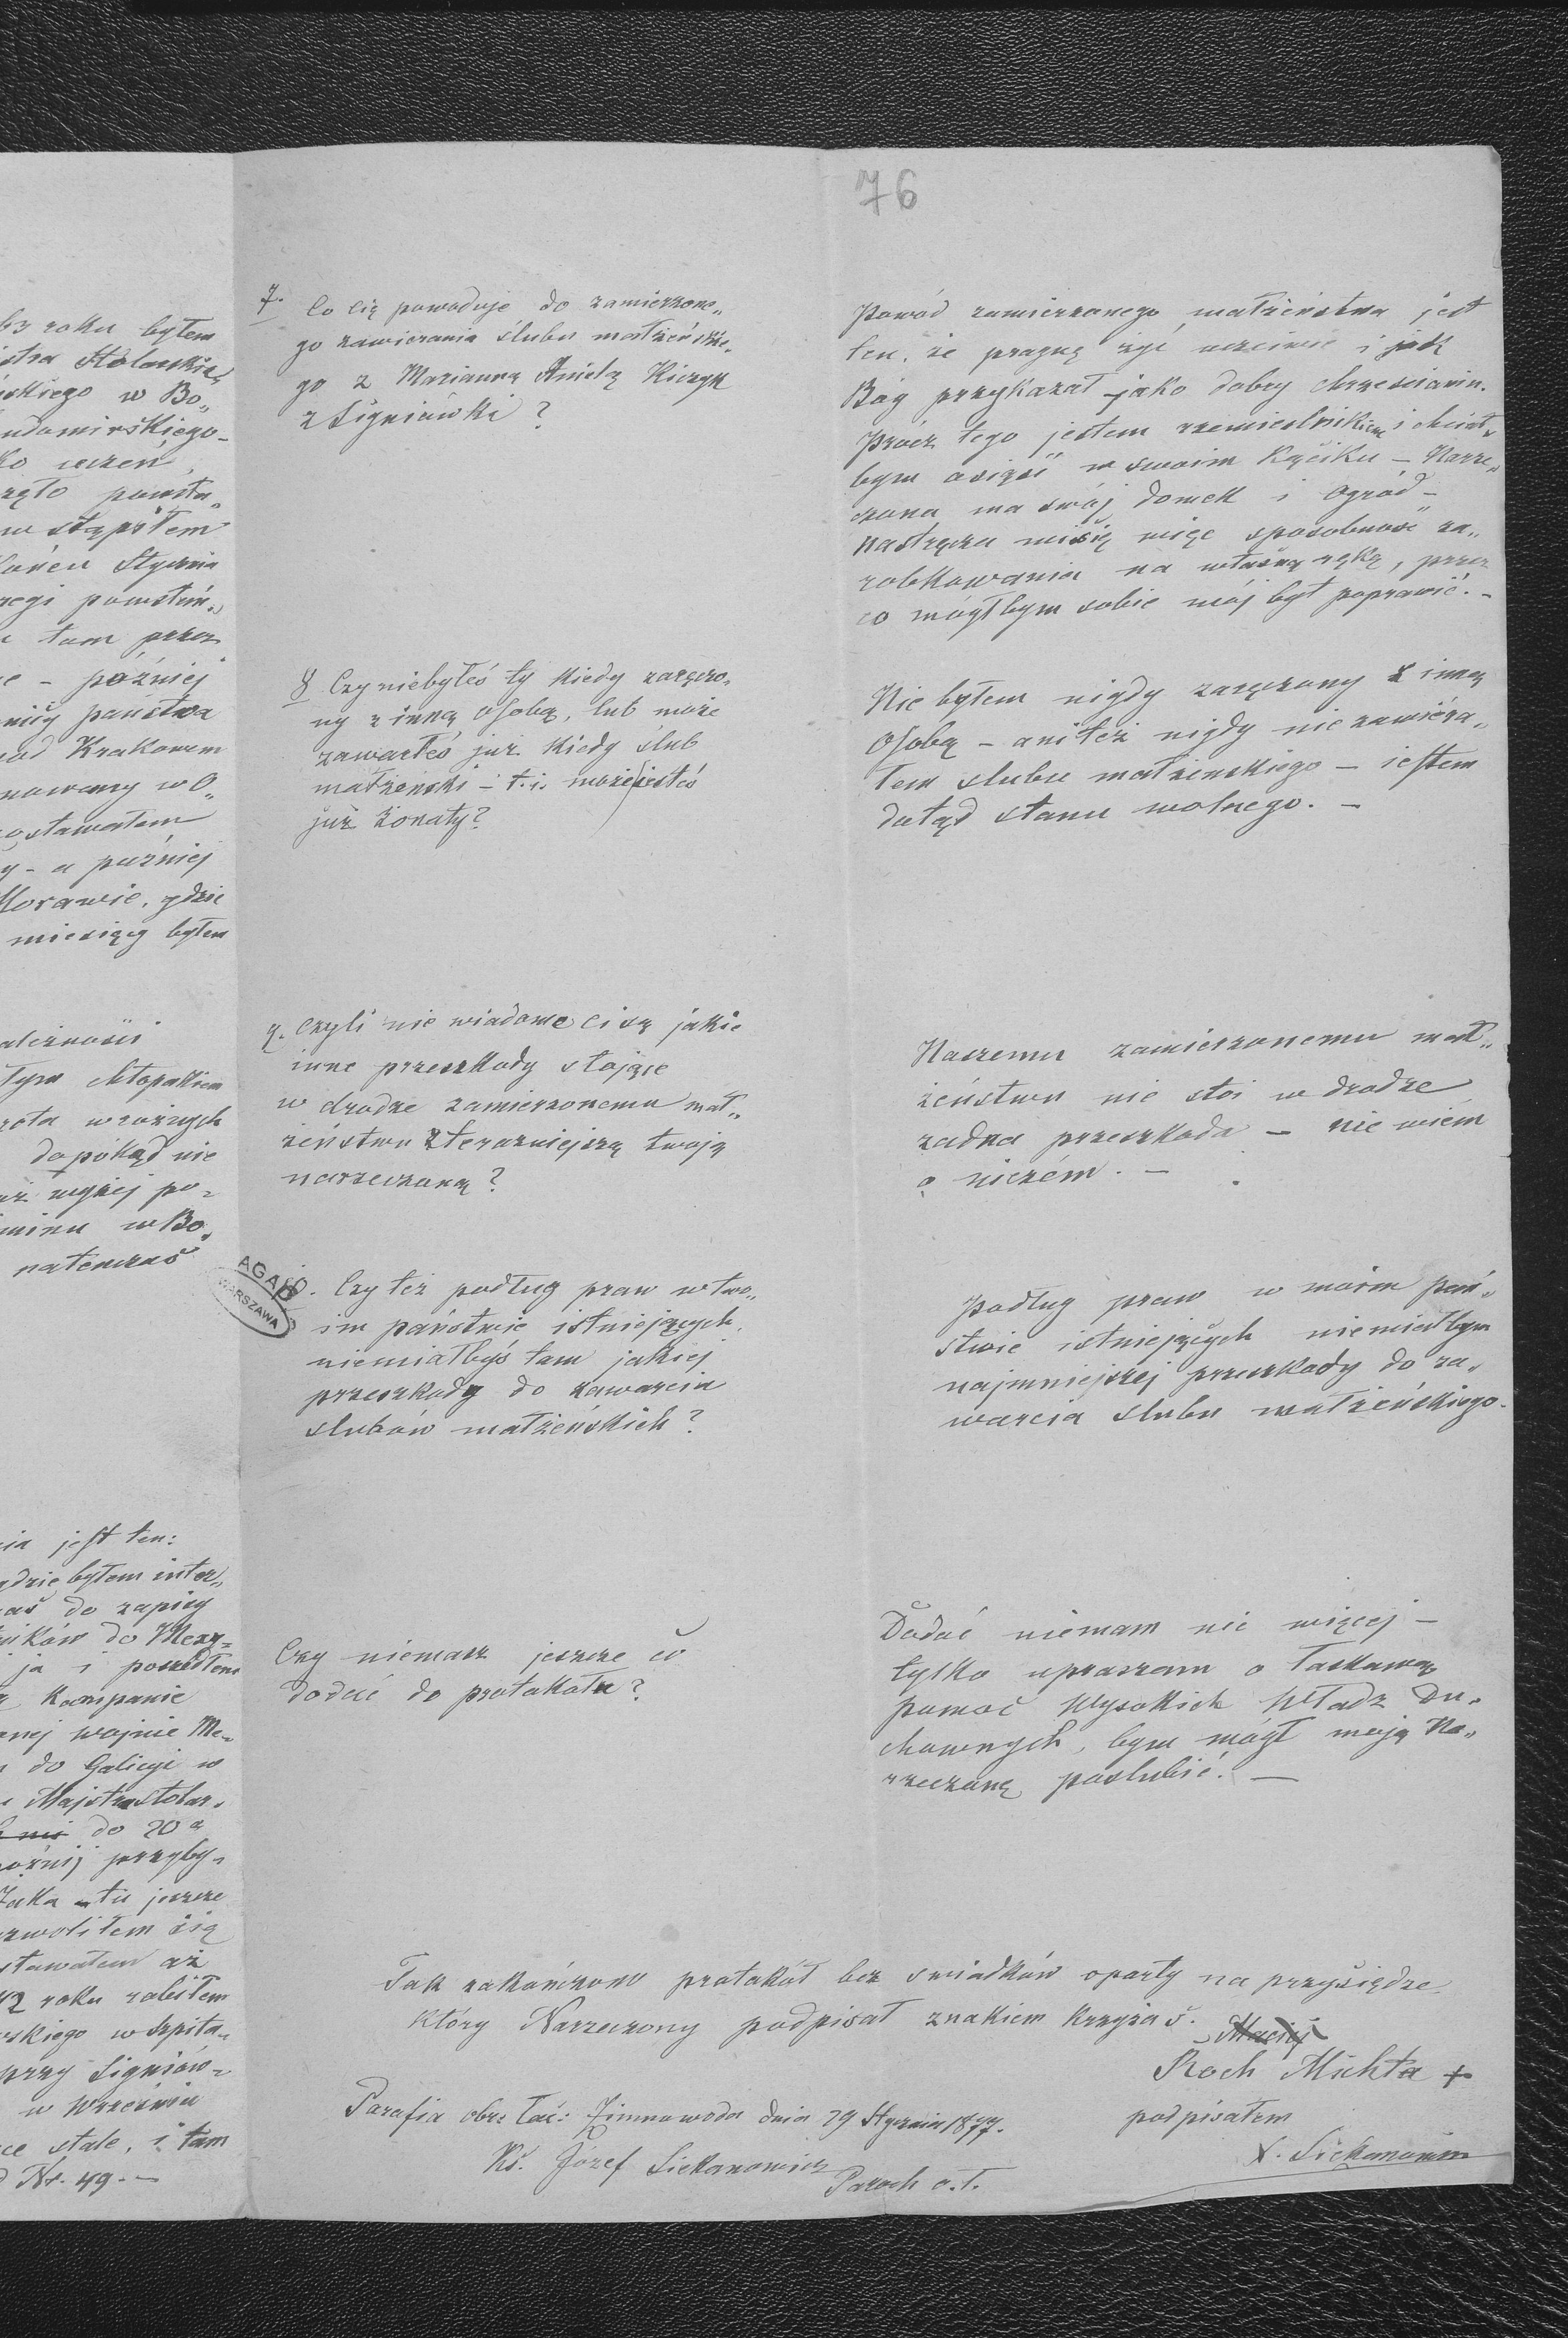 76
63 roku byłem
Stolarskie„
skiego w Bo„
udomirskiego-
ko uczeń,
powsta„
wstąpiłem
Końcu Stycznia
powstań„
tam przez
- później
państwa
pod Krakowem
w O„
ostawałem
- a puźniej
Morawie, gdzie
miesięcy byłem
ależności
łym chłopakiem
w rożnych
dopókąd nie
wyżej po=
w Bo„
natenczas
jest ten:
gdzie byłem inter„
do zapisy
ików do Mexy=
ja i poszedłem
Kompanie
wojnie Me=
do Galicyi w
Majstra Stolar„
do 20 a
przyby„
tu jeszcze
się
stawałem aż
roku robiłem
skiego w Szpita„
przy Signiów=
w Wrześniu
stale, i tam
Nr. 49.—
7. Co Cię powoduje do zamierzone„
go zawierania ślubu małżeńskie„
go z Marianną Anielą Kiczyk
z Signiówki?
Powód zamierzonego małżeństwa jest
ten, że pragnę żyć uczciwie i jak
Bóg przykazał jako dobry chrześcianin.
Prócz tego jestem rzemieślnikiem i chciał„
bym osiąść w swoim Kąciku — Narze„
czona ma swój domek i ogród —
nastręcza mi się więc sposobność za„
robkowania na własną rękę, przez
co mógłbym sobie mój byt poprawić. —
8 Czy niebyłeś ty kiedy zaręczo„
ny z inną osobą, lub może
zawarłeś już kiedy slub
małżenski — t.i. może jesteś
już żonaty?
Nie byłem nigdy zaręczony z inną
osobą — ani też nigdy nie zawiéra„
łem slubu małżenskiego — jestem
dotąd stanu wolnego. —
9. Czyli nie wiadome ci są jakie
inne przeszkody stojące
w drodze zamierzonemu mał„
żeństwu z terazniejszą twoją
narzeczoną?
Naszemu zamierzonemu mał„
żeństwu nie stoi w drodze
żadna przeszkoda — nie wiém
o niczém. —
AGAD
WARSZAWA
10. Czy też podług praw w two„
im państwie istniejących
niemiałbyś tam jakiej
przeszkody do zawarcia
slubów małżeńskich?
Podług praw w moim pań„
stwie istniejących niemiałbym
najmniejszej przeszkody do za„
warcia slubu małżeńskiego.
Czy niemasz jeszcze co
dodać do protokołu?
Dodać niemam nic więcej —
tylko upraszam o łaskawą
pomoc Wysokich Władz Du„
chownych, bym mógł moją Na„
rzeczoną poslubić. —
Tak zakończono protokół bez swiadków oparty na przysiędze
który Narzeczony podpisał znakiem Krzyża S.
Maciej
Roch Michta +
Parafia obrz łać: Zimnawoda dnia 29 Stycznia 1877.
podpisałem
Ks. Józef Siekanowicz
X. Siekanowicz
Paroch o.ł.